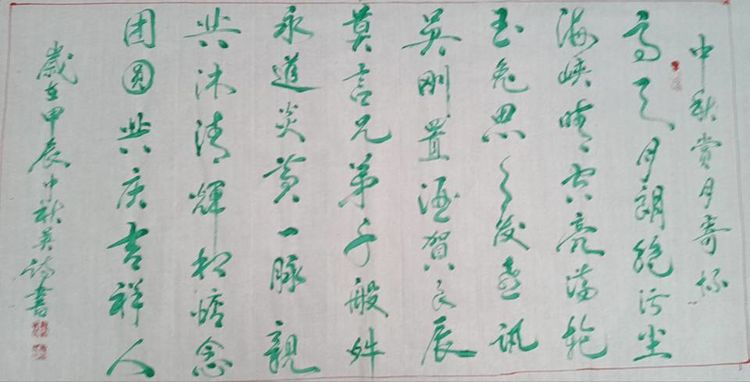 中秋赏月寄怀
高天月朗绝污尘
海峡晴空亮满轮
玉兔思发喜讯
吴刚置酒贺良辰
莫言兄弟千般姓
永道炎黄一脉親
共沐清輝相惦念
团圆共庆吉祥人
歲在甲辰中秋英诗書